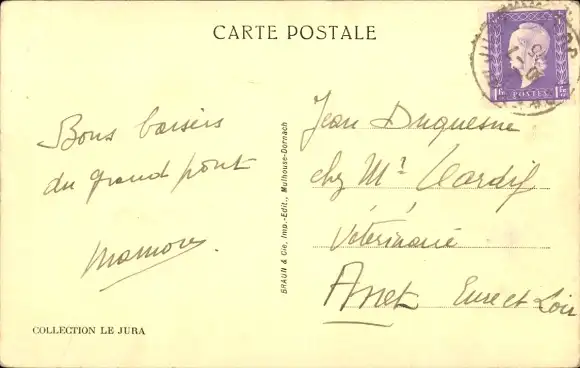 CARTE POSTALE
Bons baisers
du grand pont
Mamon
BRAUN & Cie, Imp.-Edit., Mulhouse-Dornach
COLLECTION LE JURA
POSTES
Jean Duquesne
chez Mr Hardif
Vétérinaire
Anet Eure et Loir